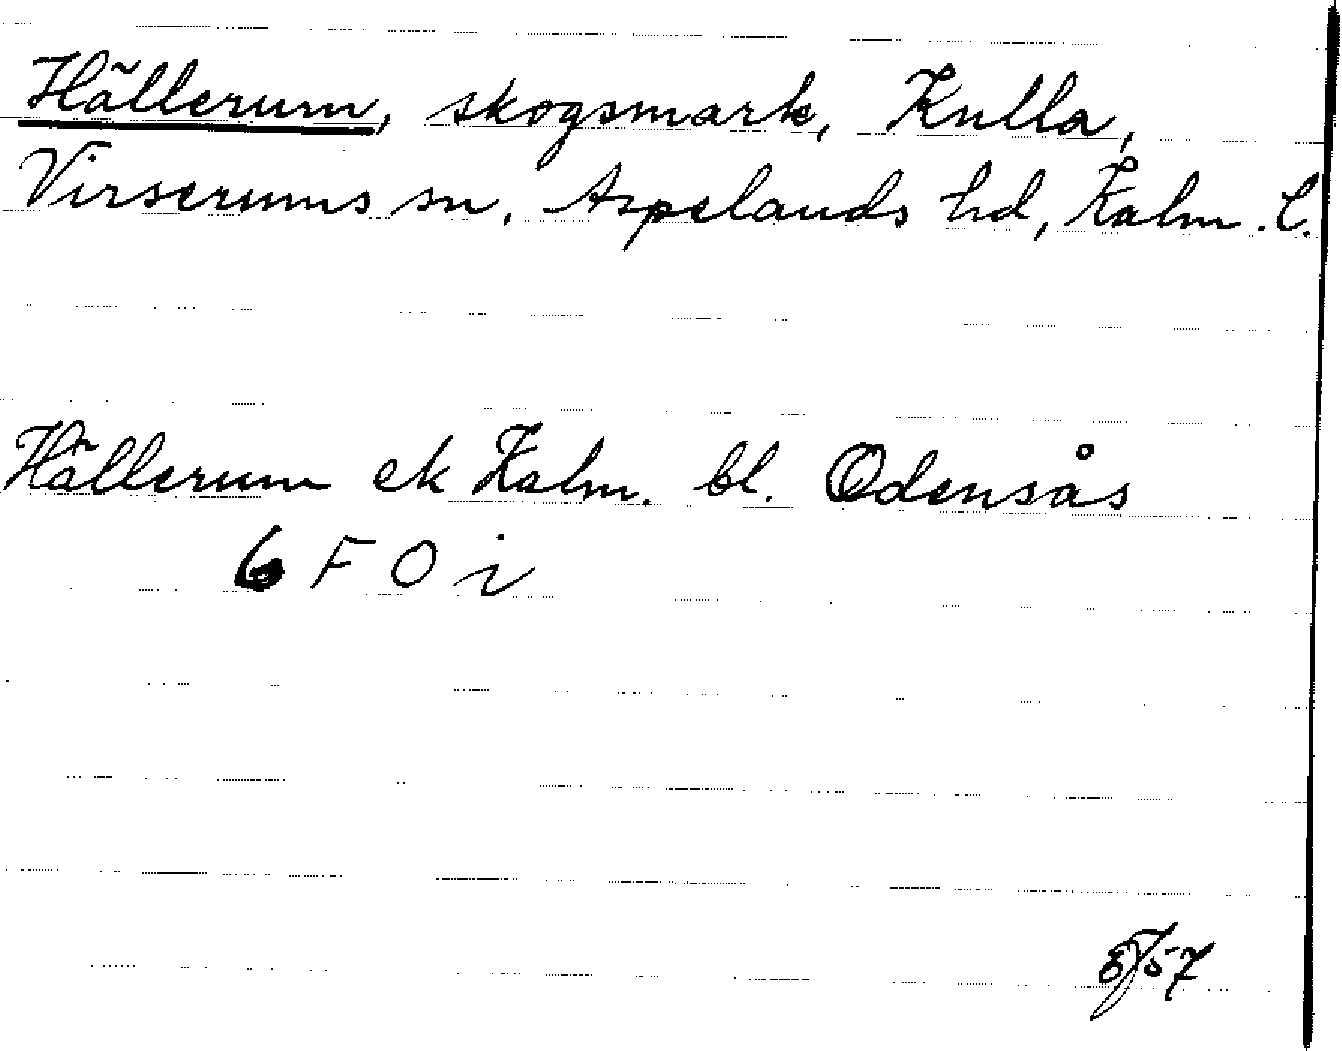 Hällerum, skogsmark, Kulla,
Virserums sn, Aspelands hd, Kalm. l.
Hällerum ek Kalm. bl. Odensås
6 F O i